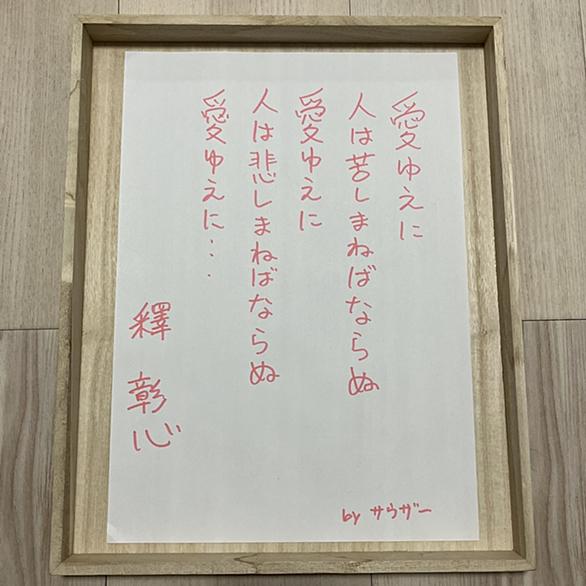 愛ゆえに
人は苦しまねばならぬ
愛ゆえに
人は悲しまねばならぬ
愛ゆえに…
釋 彰心
by サウザー